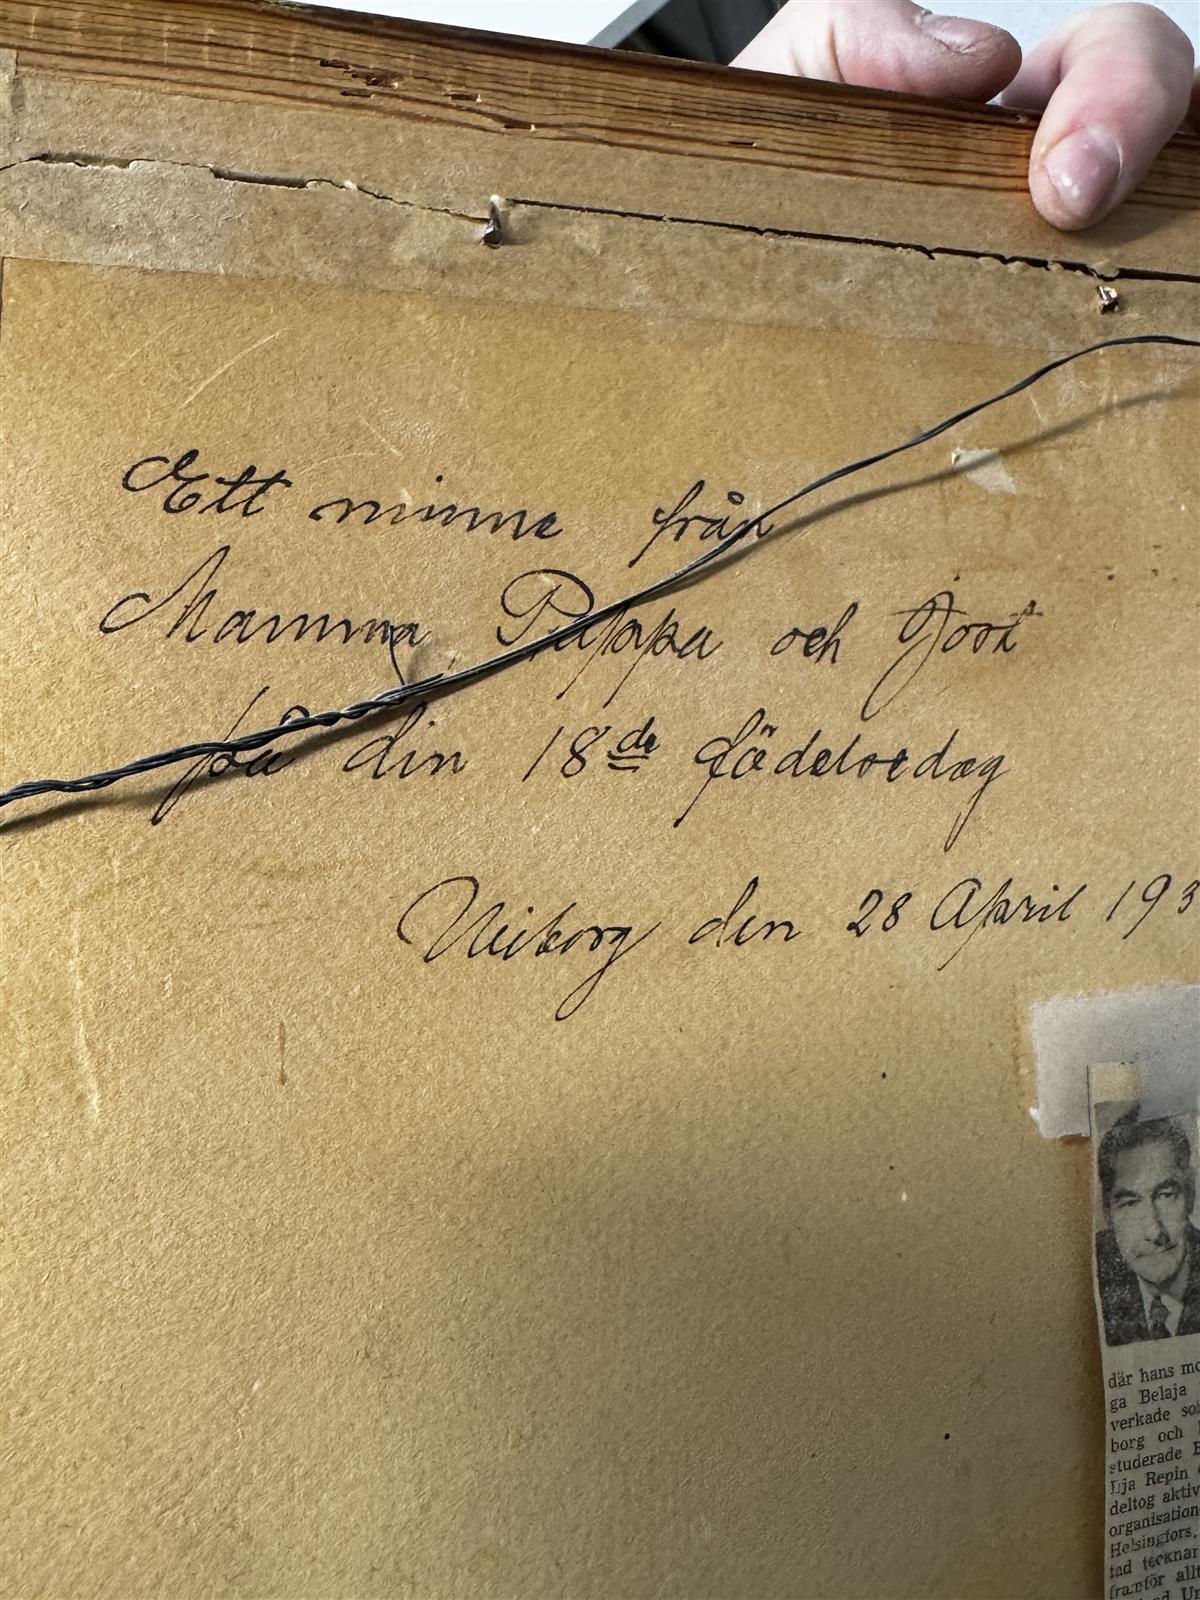 Ett minne från
Mamma, Pappa och Joost
på din 18de födelsedag
Wiborg den 28 April 193
där hans mo
ga Belaja
verkade so
borg och
studerade
Ilja Repin
deltog aktiv
organisation
Helsingfors.
tad tecknar
framför allt